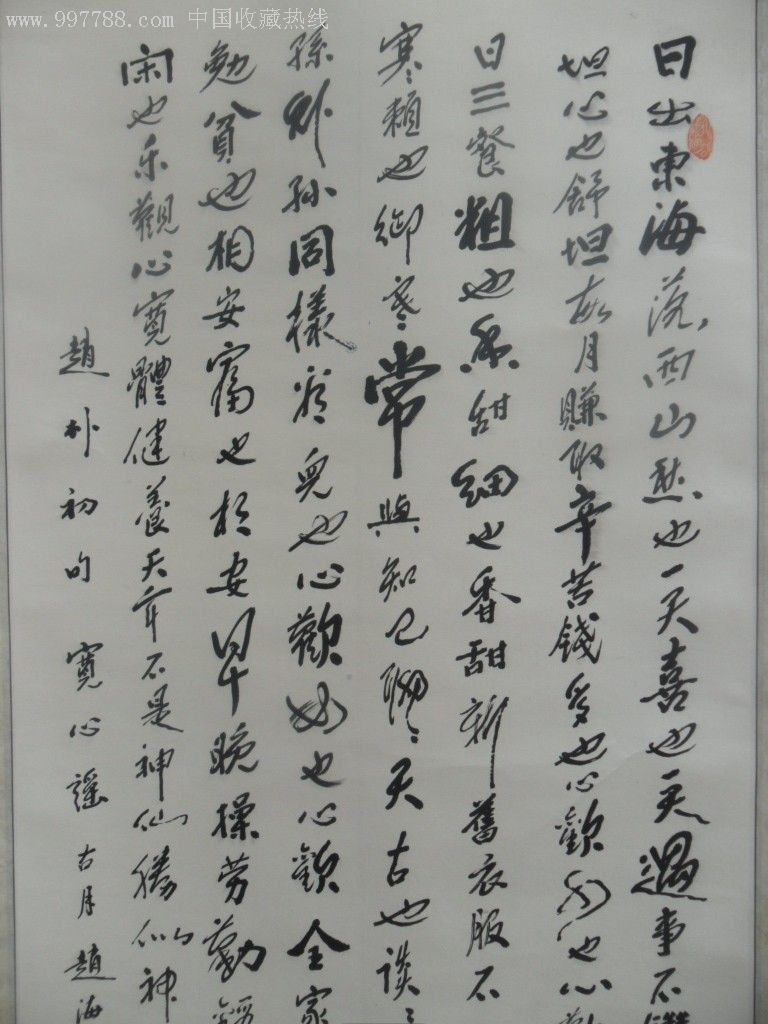 www.997788.com 中国收藏热线
日出東海落西山愁也一天喜也一天遇事不
坦心也舒坦每月賺取辛苦錢多也心歡少也心
日三餐粗也香甜細也香甜新舊衣服不
寒賴也御寒常與知己聊〻天古也談〻
孫外孙同樣看兒也心歡女也心歡全家
勉貧也相安富也相安早晚操勞勤鍛
闲也乐觀心寬體健養天年不是神仙勝似神
趙朴初句 寬心謠 古月趙海